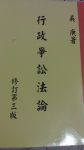 吳庚著
行政爭訟法論
修訂第三版